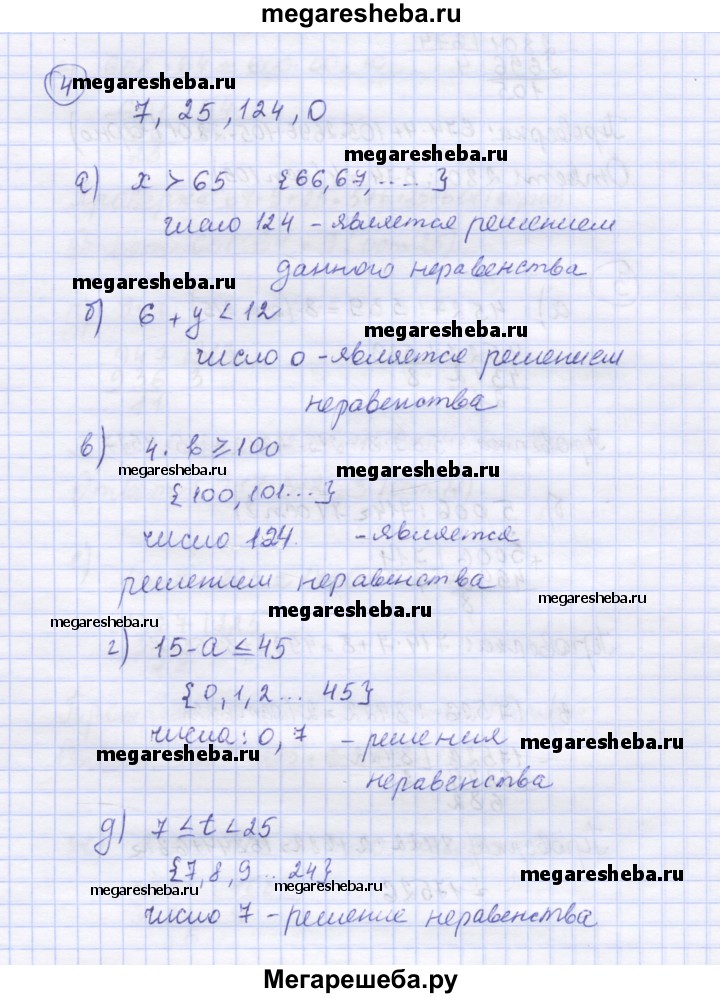 megaresheba.ru
4 megaresheba.ru
7, 25, 124, 0
megaresheba.ru
а) x > 65 {66, 67, ....}
число 124 - является решением
данного неравенства
megaresheba.ru
б) 6 + y < 12
megaresheba.ru
число 0 - является решением
неравенства
в) 4 · b ≥ 100
megaresheba.ru megaresheba.ru
{100, 101...}
число 124. - является
решением неравенства
megaresheba.ru
megaresheba.ru
megaresheba.ru
г) 15 - a ≤ 45
{0, 1, 2 ... 45}
числа: 0, 7 - решения
megaresheba.ru megaresheba.ru
неравенства
д) 7 ≤ t < 25
{7, 8, 9 ... 24}
megaresheba.ru
megaresheba.ru megaresheba.ru
число 7 - решение неравенства
Мегарешеба.ру